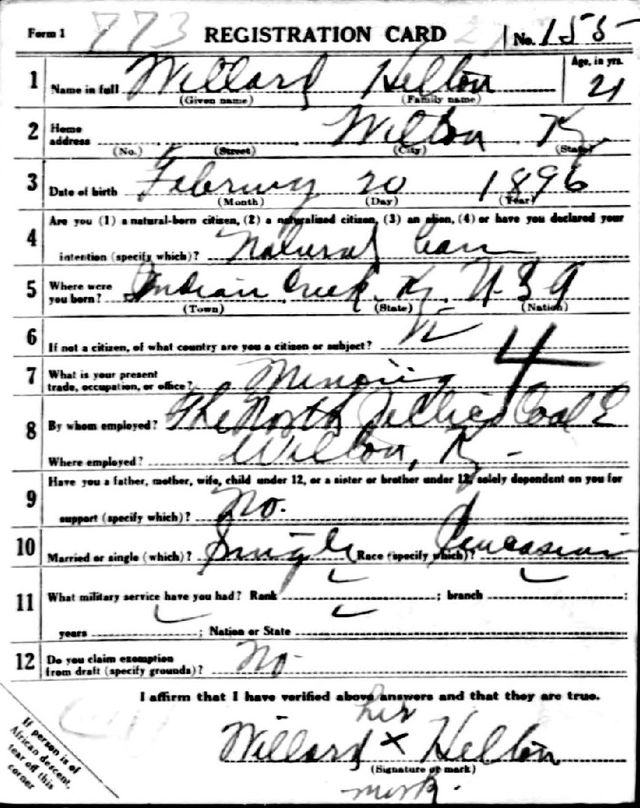 Form 1 773 REGISTRATION CARD No. 155
1 Name in full Willard Helton Age, in yrs. 21
(Given name) (Family name)
2 Home address Wilton Ky.
(No.) (Street) (City) (State)
3 Date of birth February 20 1896
(Month) (Day) (Year)
4 Are you (1) a natural-born citizen, (2) a naturalized citizen, (3) an alien, (4) or have you declared your
intention (specify which)? Natural
5 Where were you born? Indian Creek, Ky. U S A
(Town) (State) (Nation)
6 If not a citizen, of what country are you a citizen or subject?
7 What is your present trade, occupation, or office? Mining 4
8 By whom employed? The North Jellico Coal
Where employed? Wilton, Ky -
9 Have you a father, mother, wife, child under 12, or a sister or brother under 12, solely dependent on you for
support (specify which)? No.
10 Married or single (which)? Single Race (specify which)? Caucasian
11 What military service have you had? Rank ; branch ;
years ; Nation or State
12 Do you claim exemption from draft (specify grounds)? No-
I affirm that I have verified above answers and that they are true.
his
Willard x Helton
(Signature or mark)
mark.
If person is of
African descent,
tear off this
corner